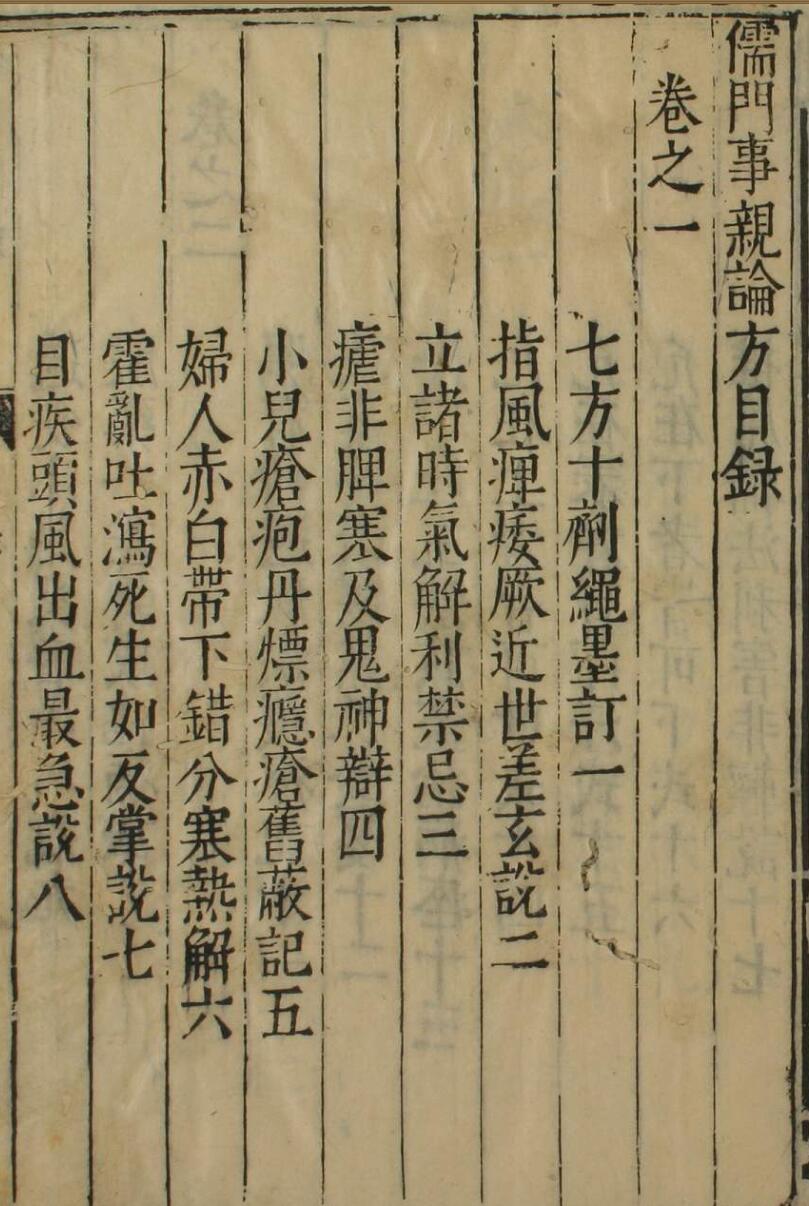 儒門事親論方目録
卷之一
七方十劑繩墨訂一
指風痺痿厥近世差玄說二
立諸時氣解利禁忌三
瘧非脾寒及鬼神辯四
小兒瘡疱丹熛癮瘡舊蔽記五
婦人赤白帶下錯分寒熱解六
霍亂吐瀉死生如反掌說七
目疾頭風出血最急說八